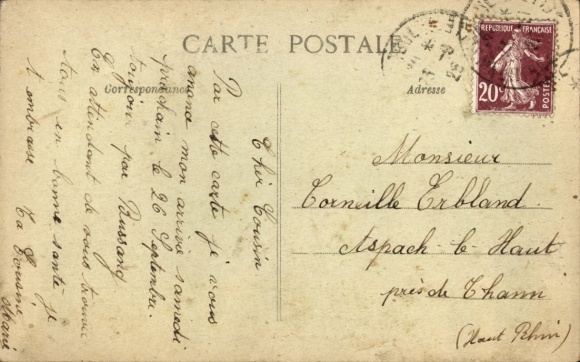 CARTE POSTALE
Correspondance
Adresse
REPUBLIQUE FRANÇAISE
20c
POSTES
Cher Cousin
Par cette carte je vous
anance mon arrivé samedi
prochain le 26 Septembre.
toujour par Bussang
En attendant de vous trouver
tous en bonne santé je
t embrasse Ta Cousine
Marie
Monsieur
Corneille Erbland
Aspach-le-Haut
près de Thann
(Haut Rhin)